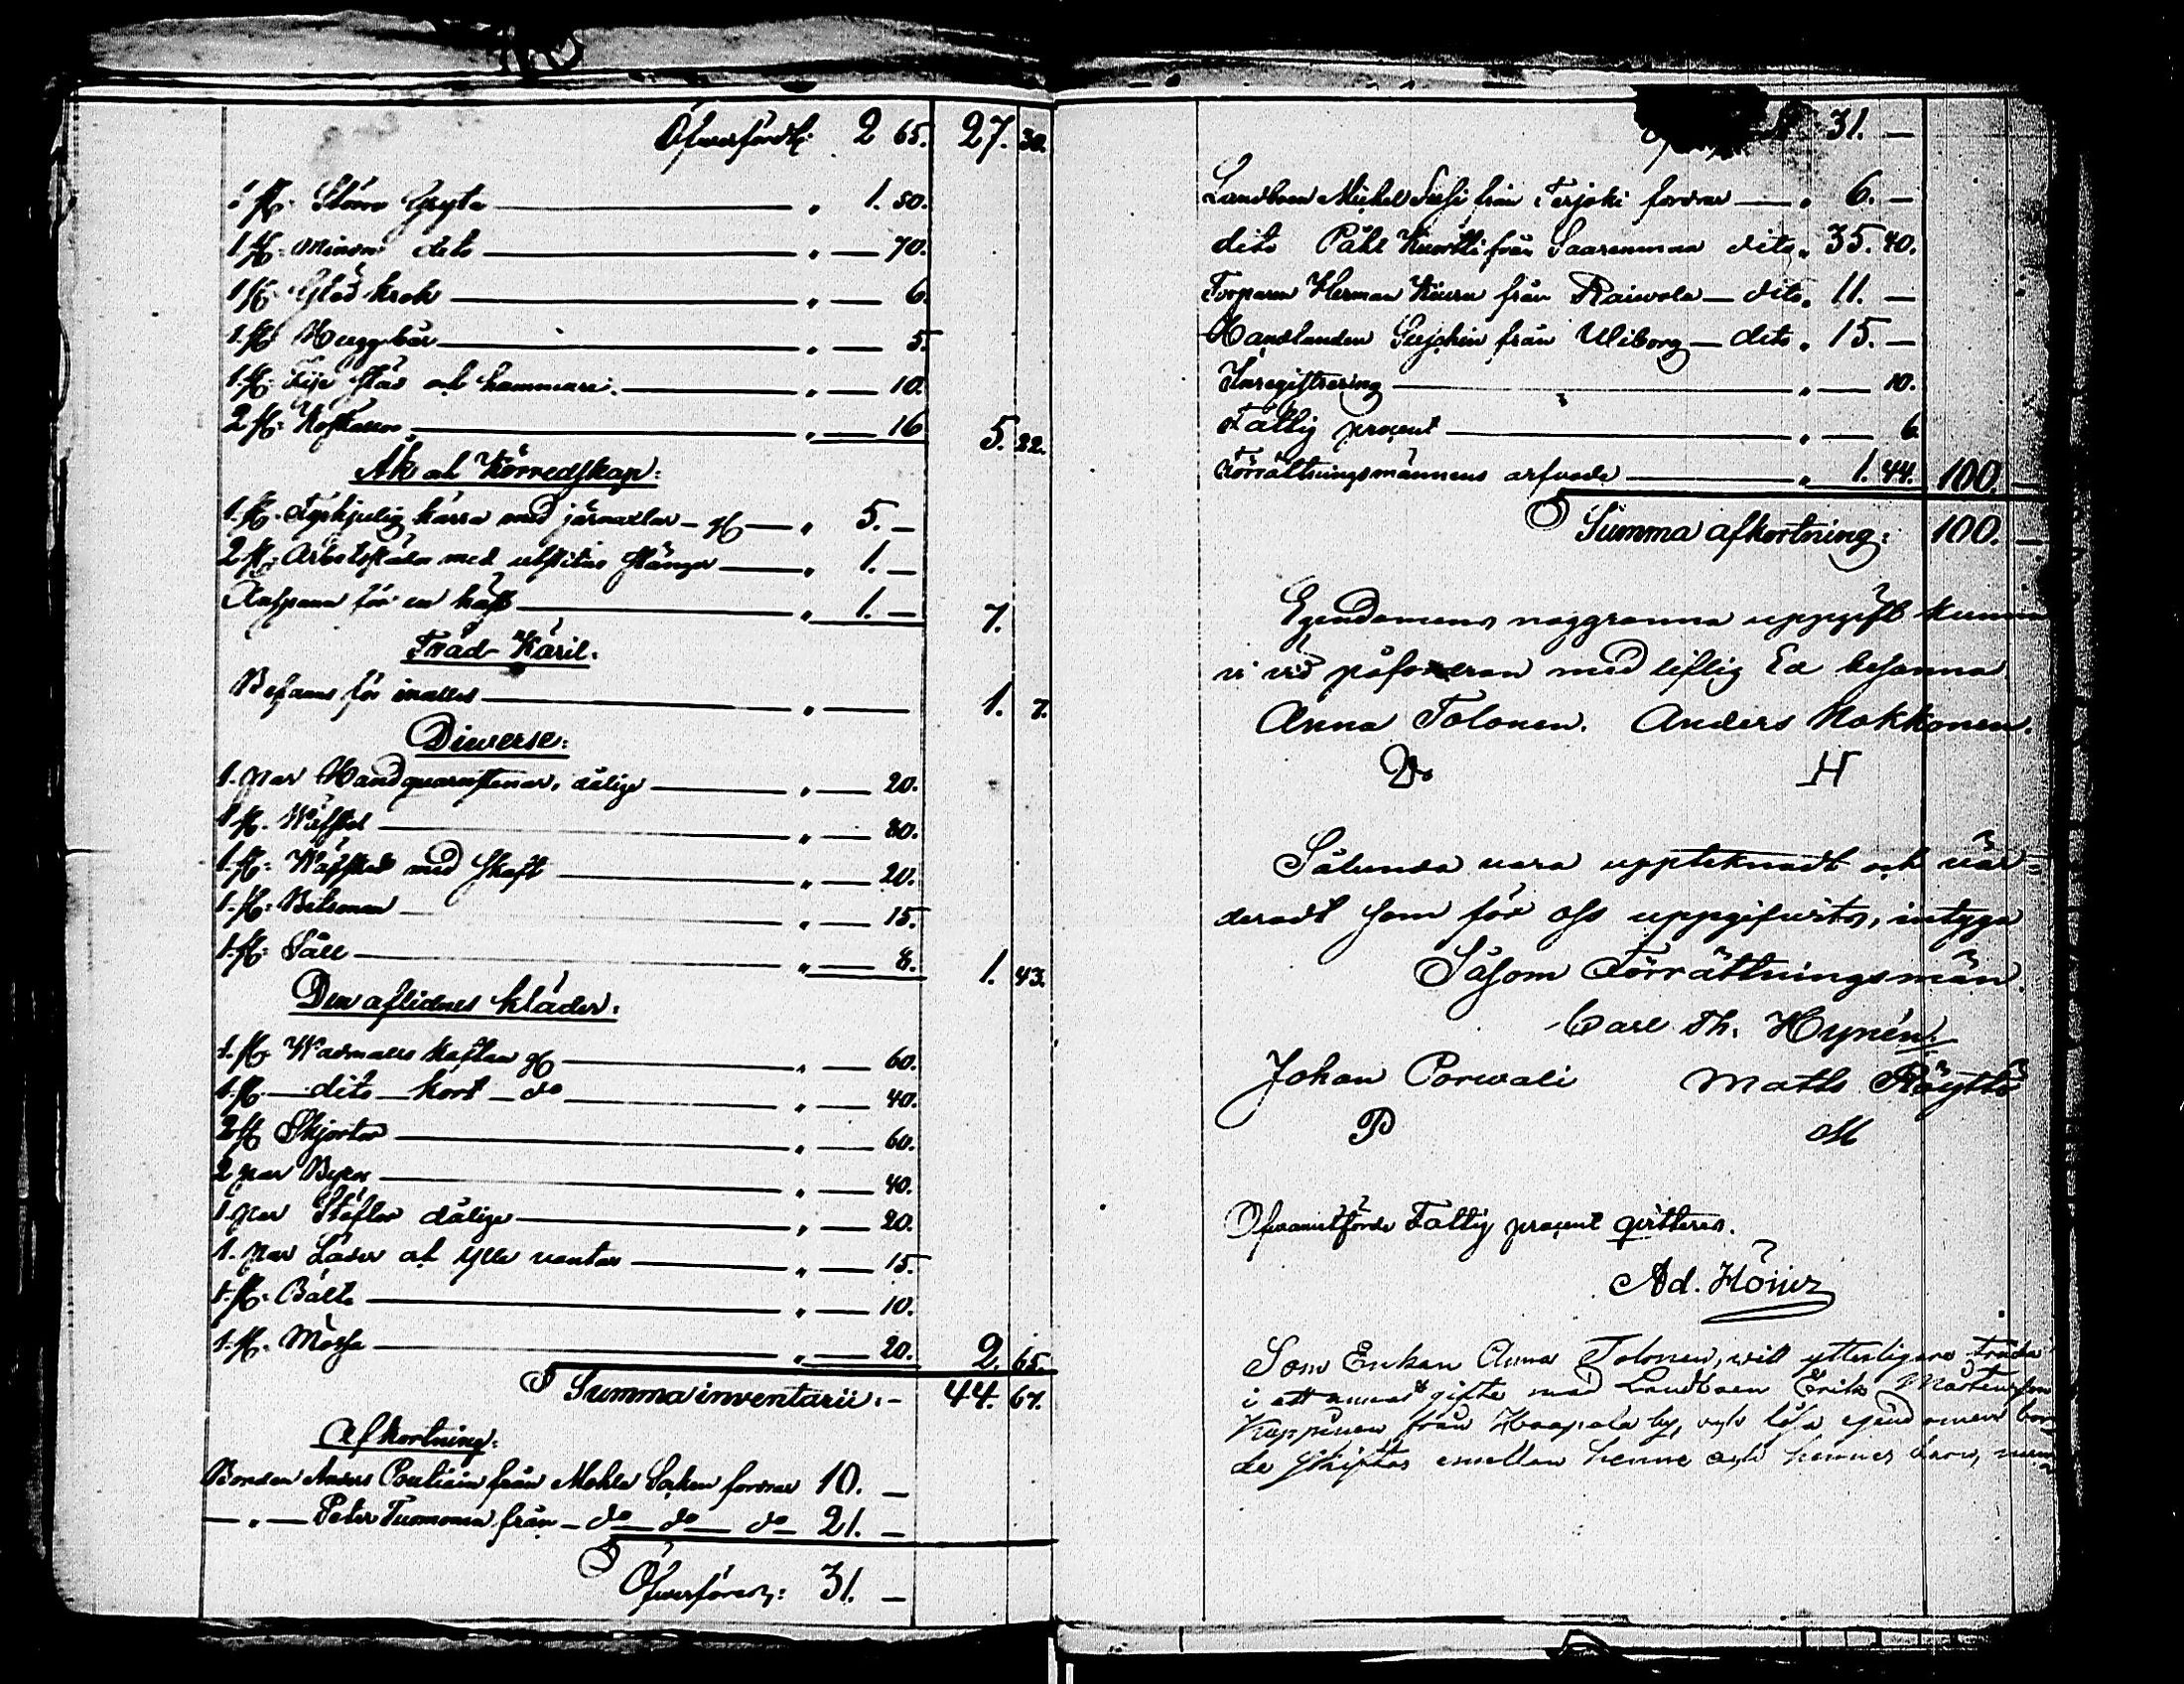 Öfverfördt: 2 65. 27. 30.
1 st. Större Gryta — " 1. 50.
1 st. Mindre dito — " — 70.
1 st. Glöd krok — " — 6.
1 st. Huggbar — " — 5.
1 st. Lije städ och hammare. — " — 10.
2 st. — " — 16 5. 22.
Åk och Körredskap:
1. st. Tyrhjulig kärra med järnaxlar — " 5. —
2 st. Arbetsslädar med utslitna stänger — " 1. —
Anspann för en häst — " 1. — 7.
Träd Käril.
Befanns för inalles — " — 1. 7.
Diverse:
1. par Handquarnstenar, dålige — " — 20.
1 st. Wäfstol — " — 80.
1. st. Wäfsked med skaft — " — 20.
1. st. Betsman — " — 15.
1. st. Såll — " — 8. 1. 43.
Den aflidnes kläder:
1. st. Wadmals Kaftan — " — 60.
1. st. — dito — kort — do — " — 40.
2 st. Skjortor — " — 60.
2 par Byxor — " — 40.
1. par Stöflor dålige — " — 20.
1. par Läder och Ylle vantar — " — 15.
1. st. Bälte — " — 10.
1. st. Mössa — " — 20. 2. 65.
Summa inventarii: - 44. 67.
Afkortning:
Bonden Anders Pouliain från Mohla Socken fordrar 10. —
— " — Peter Tuomonen från — do — do — do — 21. —
Öfverföres: 31. —
31. —
Landboen Michel Susi från Terjoki fordrar — " 6. —
dito Påhl Kurtti från Saarenmaa dito " 35. 40.
Torparen Herman Kiuru från Raiwola — dito " 11. —
Handlanden från Wiborg — dito " 15. —
Inregistrering — " — 10.
Fattig procent — " — 6
Förrättningsmännens arfvode — " 1. 44. 100. —
Summa afkortning: 100. —
Egendomens noggranna uppgift kunna
vi vid påfordran med liflig Ed besanna
Anna Tolonen. Anders Kokkonen.
H
Sålunda vara upptecknadt och vär=
deradt som för oss uppgifvits, intyga
Såsom Förrättningsmän.
Carl Th. Hynén.
Johan Porwali Matts Röyttö
P M
Ofvanintförde Fattig procent qvitteras.
Ad. Höijer
Som Enkan Anna Tolonen, will ytterligare träda
i ett annat gifte med Landboen Erik Mårtensson
Kappinen från Haapala by, och lösa egendomen bor=
de skiftas emellan henne och hennes barn,